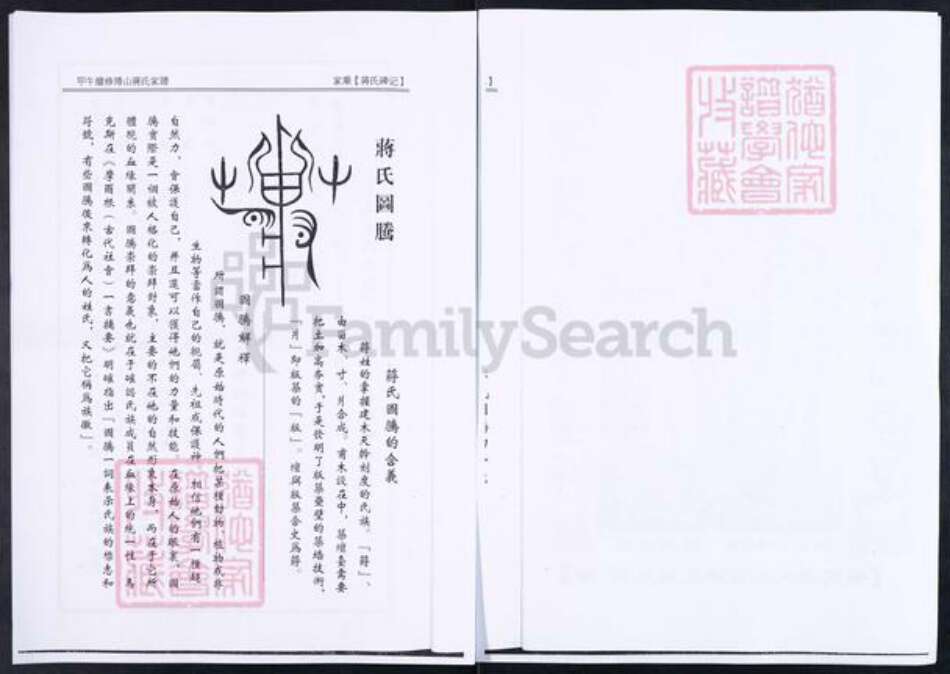 甲午續修陽山蔣氏家譜
家乘【蔣氏碑记】
蔣氏圖騰
蔣氏圖騰的含義
蔣姓的掌握建木天斡刻度的氏族。「蔣」、
由甫木、寸、月合成。甫木設在中，築壇臺需要
把土加高夯實，于是發明了版築疊壁的築墻技術，
「月」即版築的「版」。壇與版築合文爲蔣。
圖騰解釋
所謂圖騰，就是原始時代的人們把某種動物、植物或非
生物等當作自己的親屬、先祖或保護神。相信他們有一種超
自然力，會保護自己，并且還可以獲得他們的力量和技能。在原始人的眼裏，圖
騰實際是一個被人格化的崇拜對象，主要的不在他的自然形象本身，而在于它所
體現的血緣關系。圖騰崇拜的意義也就在于確認氏族成員在血緣上的統一性。馬
克斯在《摩爾根〈古代社會〉一書摘要》明確指出「圖騰一詞表示氏族的標志和
符號，有些圖騰後來轉化爲人的姓氏，又把它稱爲族徽」。
猶他家
譜學會
收藏
猶他家
譜學會
收藏
FamilySearch